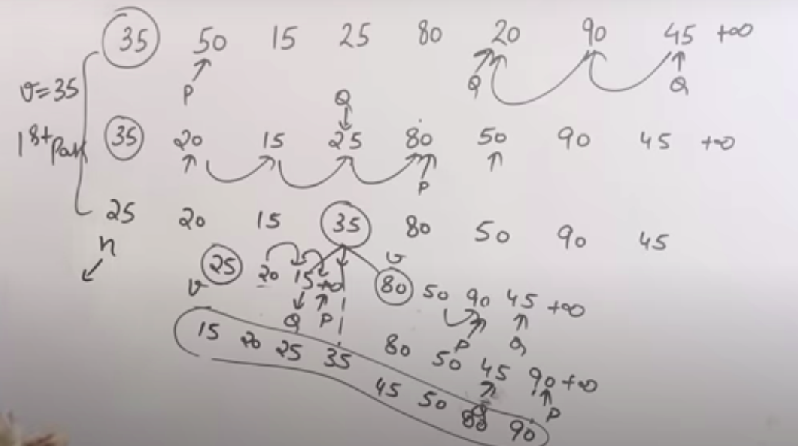 35 50 15 25 80 20 90 45 +∞
P Q Q
v=35
Q
1st Pass 35 20 15 25 80 50 90 45 +∞
P
25 20 15 35 80 50 90 45
n
v 25 20 15 +∞ v 80 50 90 45 +∞
Q P P Q
15 20 25 35 80 50 45 90 +∞
45 50 80 90 Q P